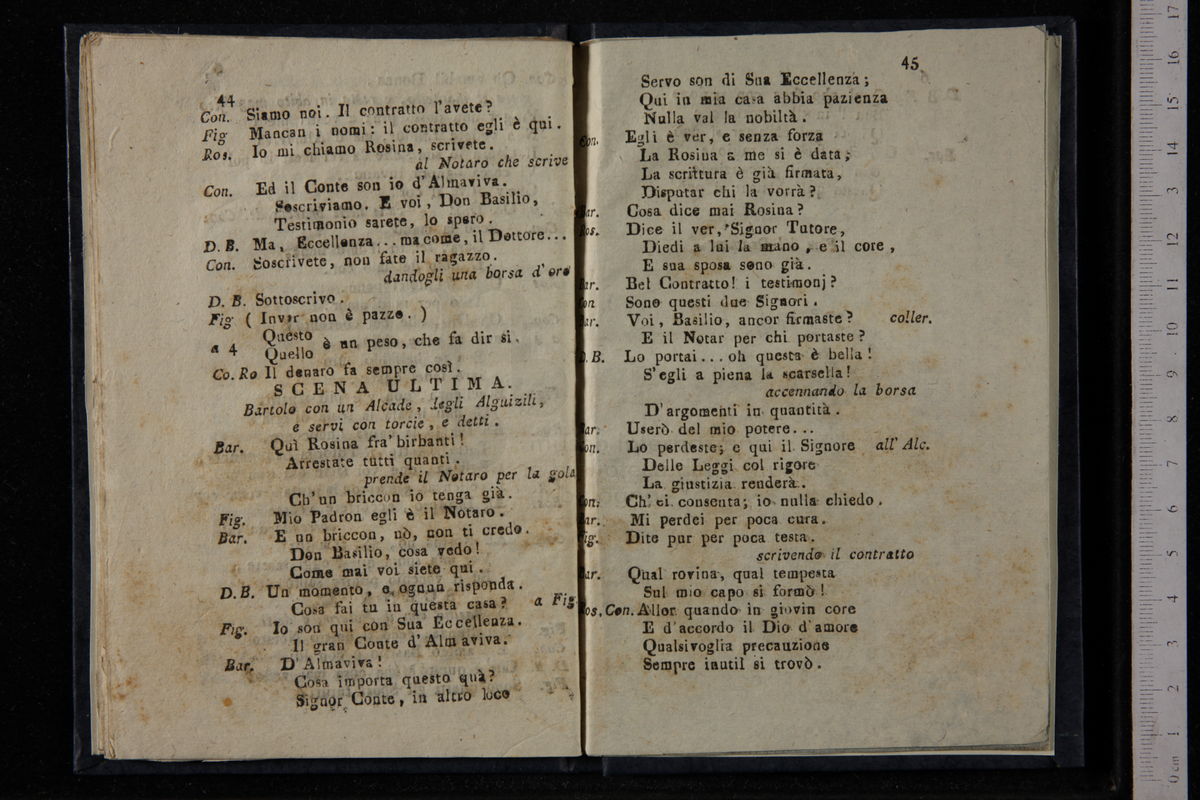 44
Con. Siamo noi. Il contratto l'avete?
Fig Mancan i nomi: il contratto egli è qui.
Ros. Io mi chiamo Rosina, scrivete.
al Notaro che scrive
Con. Ed il Conte son io d'Almaviva.
Soscriviamo. E voi, Don Basilio,
Testimonio sarete, lo spero.
D. B. Ma, Eccellenza... ma come, il Dottore...
Con. Soscrivete, non fate il ragazzo.
dandogli una borsa d'oro
D. B. Sottoscrivo.
Fig ( Inver non è pazzo. )
a 4 Questo
Quello è un peso, che fa dir si.
Co. Ro Il denaro fa sempre così.
SCENA ULTIMA.
Bartolo con un Alcade, degli Alguizili,
e servi con torcie, e detti.
Bar. Quì Rosina fra' birbanti!
Arrestate tutti quanti.
prende il Notaro per la gola
Ch'un briccon io tenga già.
Fig. Mio Padron egli è il Notaro.
Bar. E un briccon, nò, non ti credo.
Don Basilio, cosa vedo!
Come mai voi siete qui.
D. B. Un momento, e ognun risponda.
Cosa fai tu in questa casa? a Fig
Fig. Io son qui con Sua Eccellenza.
Il gran Conte d'Almaviva.
Bar. D'Almaviva!
Cosa importa questo quà?
Signor Conte, in altro loco
45
Servo son di Sua Eccellenza;
Qui in mia casa abbia pazienza
Nulla val la nobiltà.
Con. Egli è ver, e senza forza
La Rosina a me si è data;
La scrittura è già firmata,
Disputar chi la vorrà?
Bar. Cosa dice mai Rosina?
Ros. Dice il ver, Signor Tutore,
Diedi a lui la mano, e il core,
E sua sposa sono già.
Bar. Bel Contratto! i testimonj?
Con Sono questi due Signori.
Bar. Voi, Basilio, ancor firmaste? coller.
E il Notar per chi portaste?
D. B. Lo portai... oh questa è bella!
S'egli a piena la scarsella!
accennando la borsa
D'argomenti in quantità.
Bar. Userò del mio potere...
Con. Lo perdeste; e qui il Signore all' Alc.
Delle Leggi col rigore
La giustizia renderà.
Con. Ch' ei consenta; io nulla chiedo.
Bar. Mi perdei per poca cura.
Fig. Dite pur per poca testa.
scrivendo il contratto
Bar. Qual rovina, qual tempesta
Sul mio capo si formò!
Ros. Con. Allor quando in giovin core
E d'accordo il Dio d'amore
Qualsivoglia precauzione
Sempre inutil si trovò.
0 cm 1 2 3 4 5 6 7 8 9 10 11 12 13 14 15 16 17